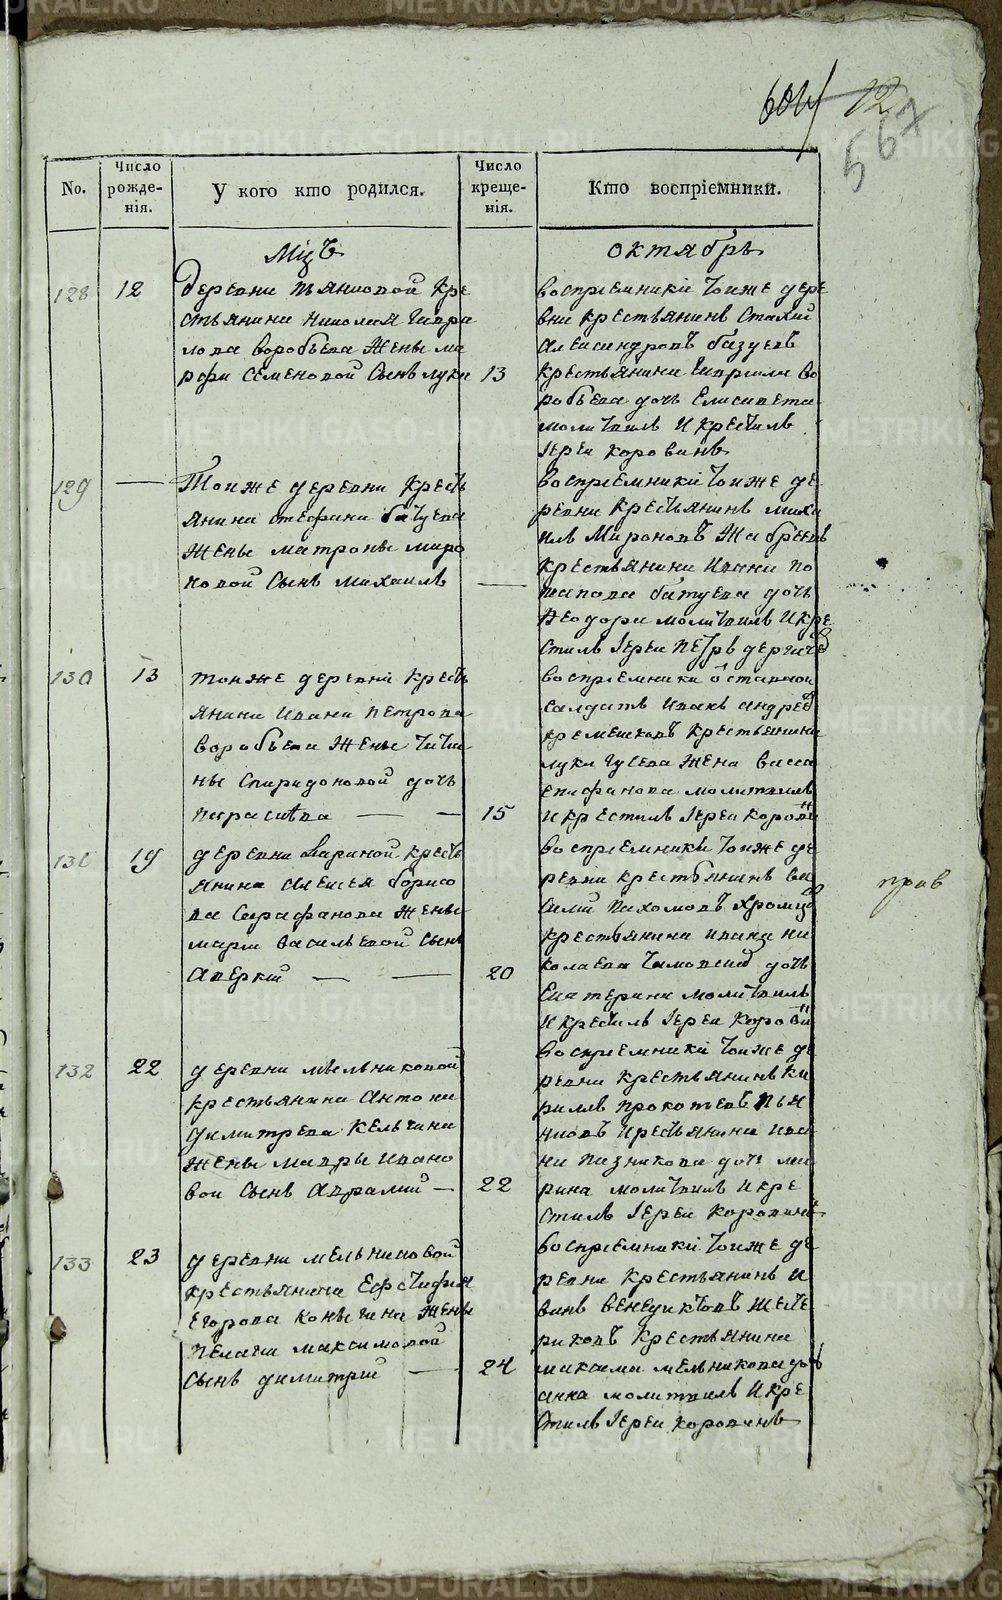 604 12
567
No.
Число рожде-нія.
У кого кто родился.
Число креще-нія.
Кто воспріемники.
Мцъ
октябрь
128 12
деревни пьянковой кре
стьянина николая гаври
лова воробьева жены ма
рфы семеновой сынъ лука 13
воспріемники тоиже дере
вни крестьянинъ
александровъ
крестьянина гавриила во
робьева дочь елисавета
молитвилъ и крестилъ
іереи коровинъ
129
Тоиже деревни кресть
янина стефана батуева
жены матроны миро
новой сынъ михаилъ
воспріемники тоиже де
ревни крестьянинъ миха
илъ мироновъ
крестьянина ивана по
тапова батуева дочь
феодора молитвилъ и кре
стилъ іереи петръ
130 13
тоиже деревни кресть
янина ивана петрова
воробьева жены татья
ны спиридоновой дочь
параскева 15
воспріемники отставной
салдатъ иванъ андреев
кремешковъ крестьянина
луки гусева жена васса
епифанова молитвилъ
и крестилъ іереи коровин
131 19
деревни кресть
янина алексея борисо
ва сарафанова жены
марьи васильевой сынъ
аверкий 20
воспріемники тоиже де
ревни крестьянинъ ва
силий пахомовъ
крестьянина ивана ни
колаева дочь
екатерина молитвилъ
и крестилъ іереи коровин
прав
132 22
деревни мельниковой
крестьянина антона
димитрева кельчина
жены мавры ивано
вои сынъ аврамий 22
воспріемники тоиже де
ревни крестьянинъ ки
риллъ прокопьевъ пья
нковъ крестьянина ива
на дочь ма
рина молитвилъ и кре
стилъ іереи коровинъ
133 23
деревни мельниковой
крестьянина
егорова конычина жены
пелагии максимовой
сынъ димитрий 24
воспріемники тоиже де
ревни крестьянинъ и
ванъ венедиктовъ
риковъ крестьянина
максима мельникова дочь
анна молитвилъ и кре
стилъ іереи коровинъ
METRIKI.GASO-URAL.RU